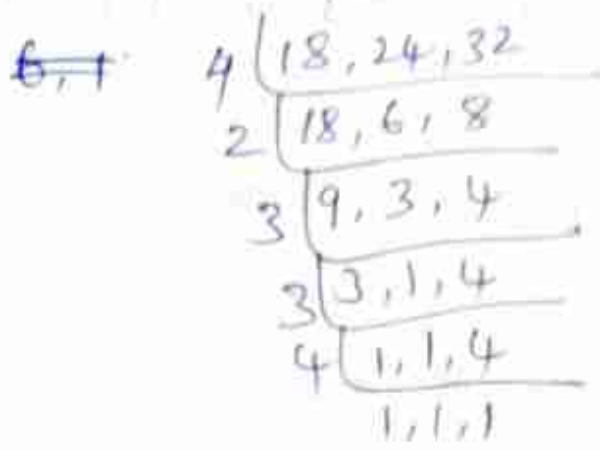 6, 1
4 18, 24, 32
2 18, 6, 8
3 9, 3, 4
3 3, 1, 4
4 1, 1, 4
1, 1, 1